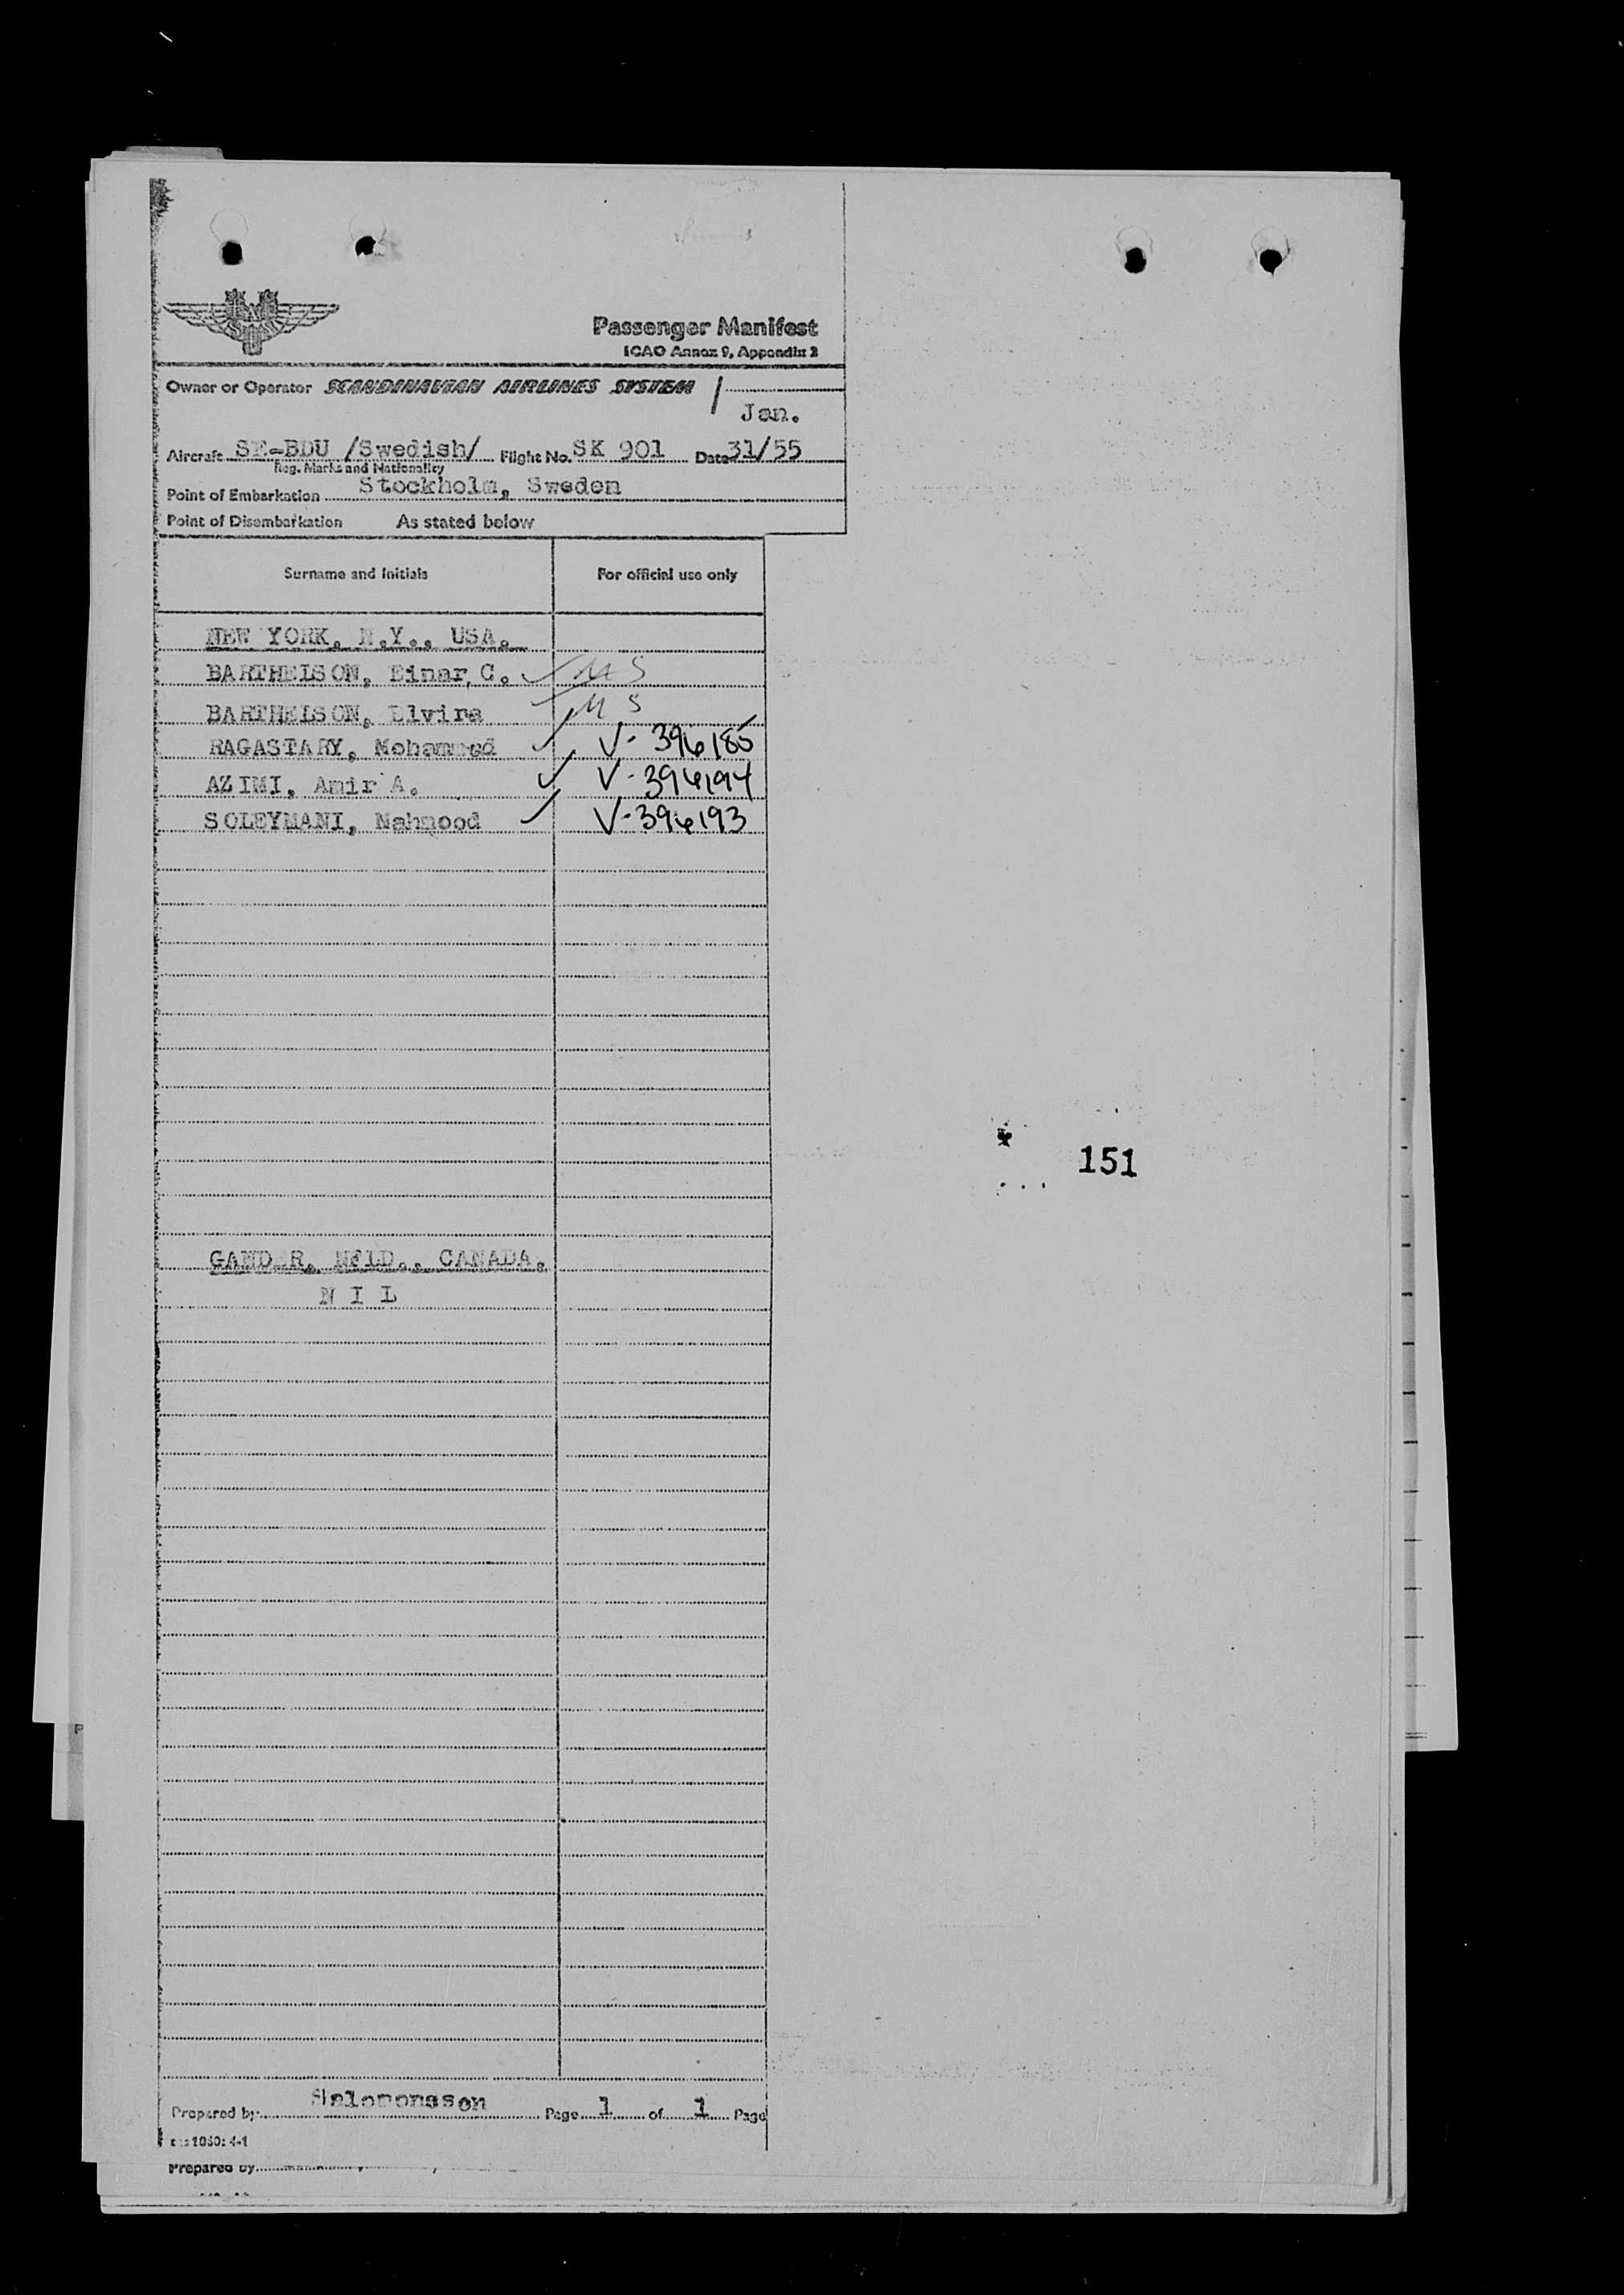 Passenger Manifest
ICAO Annex 9, Appendix 2
Owner or Operator SCANDINAVIAN AIRLINES SYSTEM
Jan.
Aircraft SE-BDU /Swedish/ Flight No. SK 901 Date 31/55
Reg. Marks and Nationality
Point of Embarkation Stockholm, Sweden
Point of Disembarkation As stated below
Surname and Initials For official use only
NEW YORK, N.Y., USA.
BARTHELSON, Einar C. ✓ M S
BARTHELSON, Elvira ✓ M S
RAGASTARY, Mohammed ✓ V- 396185
AZIMI, Amir A. ✓ V-396194
SOLEYMANI, Mahmood ✓ V-396193
151
GAND R, NFLD., CANADA.
N I L
Prepared by Salomonsson Page 1 of 1 Page
1060: 4-1
Prepared by